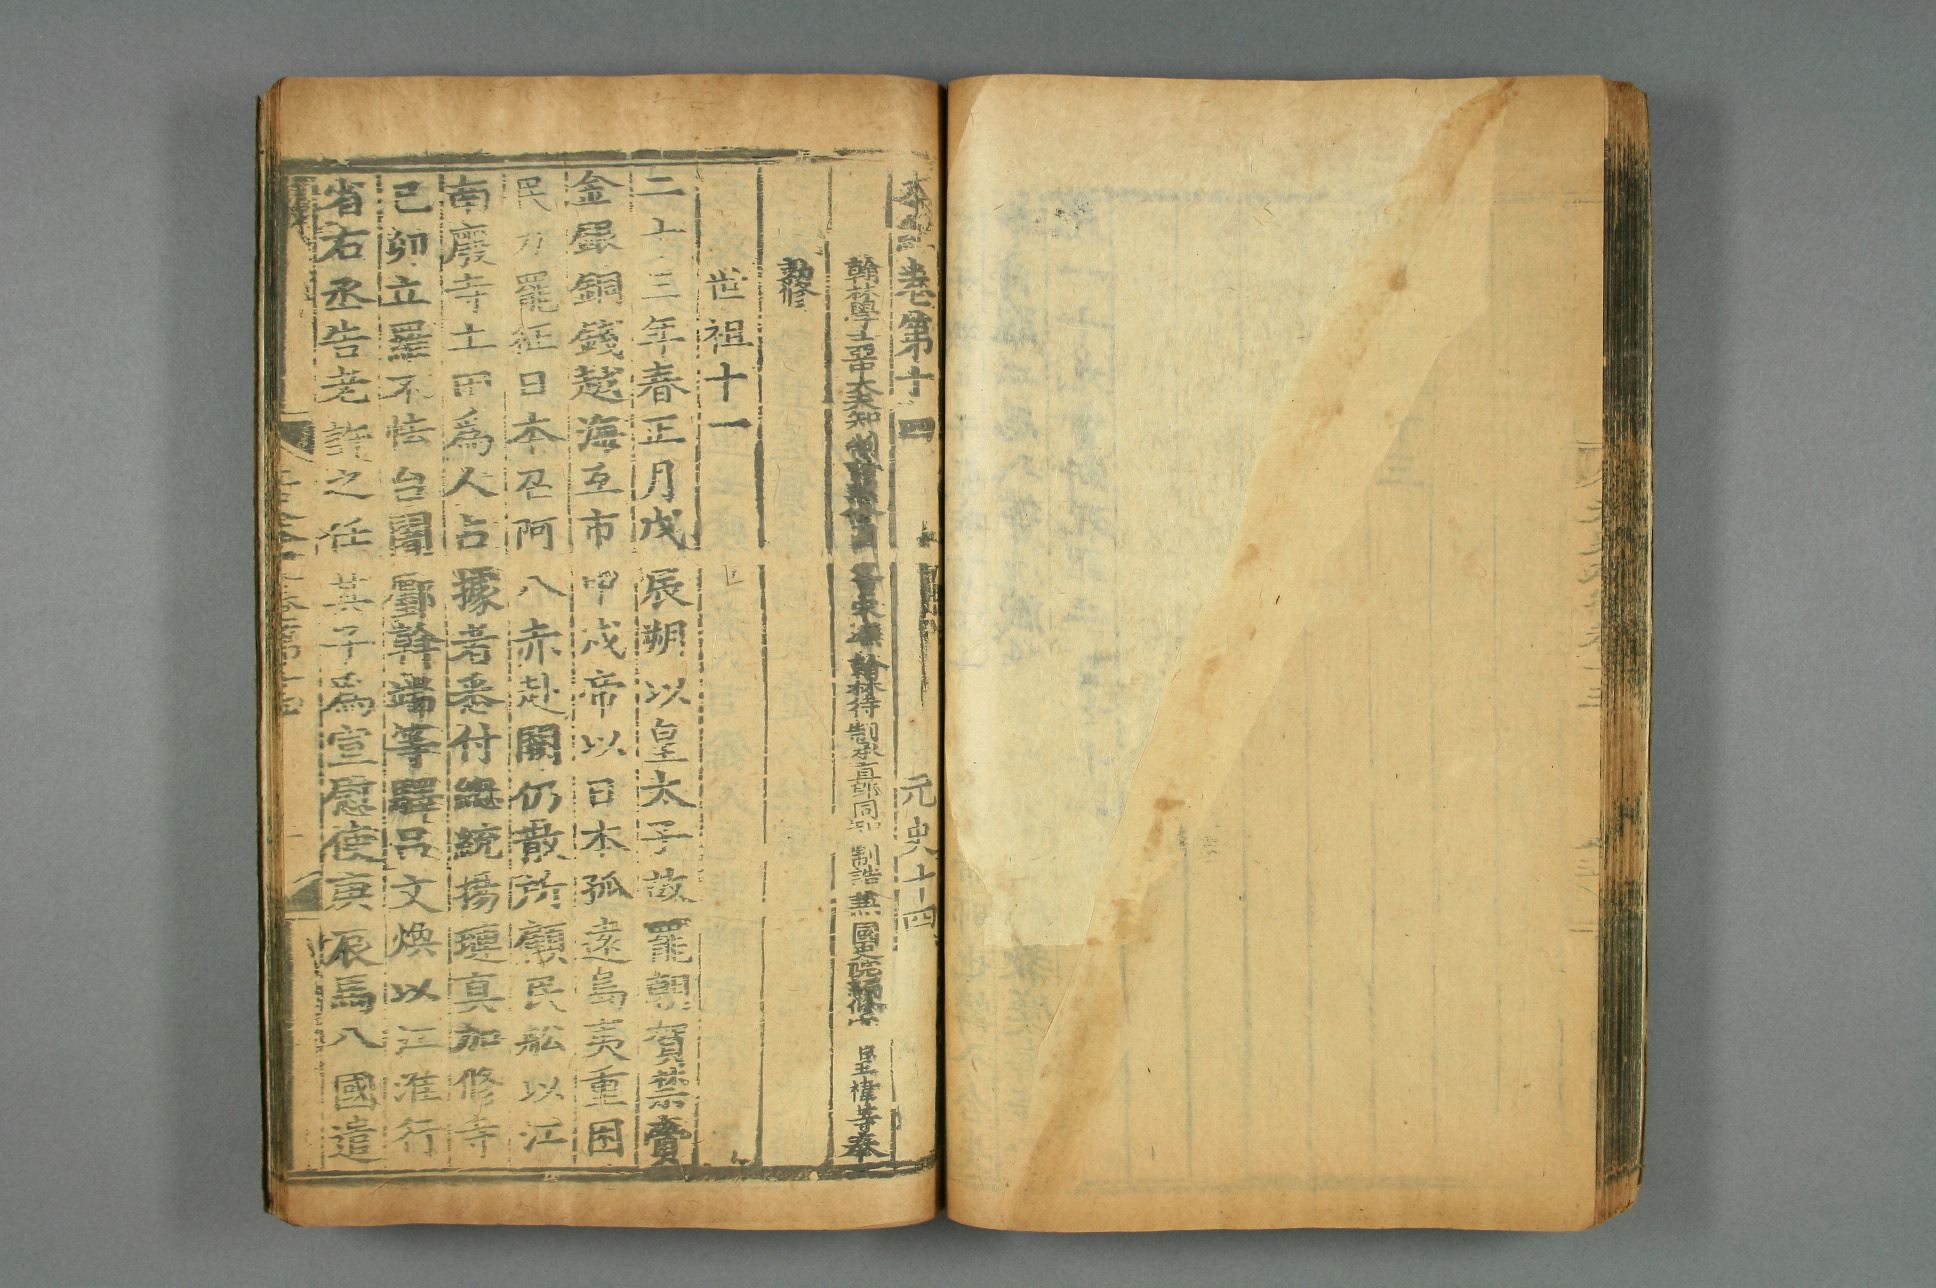 本紀卷第十四 元史十四
翰林學士亞中大夫知制誥兼修國史臣宋濂翰林待制承直郎同知制誥兼國史院編修官臣王禕等奉
勑修
世祖十一
二十三年春正月戊辰朔以皇太子故罷朝賀禁賫
金銀銅錢越海互市甲戌帝以日本孤遠島夷重困
民力罷征日本召阿八赤赴闕仍散所顧民舩以江
南廢寺土田爲人占據者悉付緫統揚璉真加修寺
己卯立羅不怯台闍鄽斡端等驛呂文煥以江淮行
省右丞告老許之任其子爲宣慰使庚辰馬八國遣